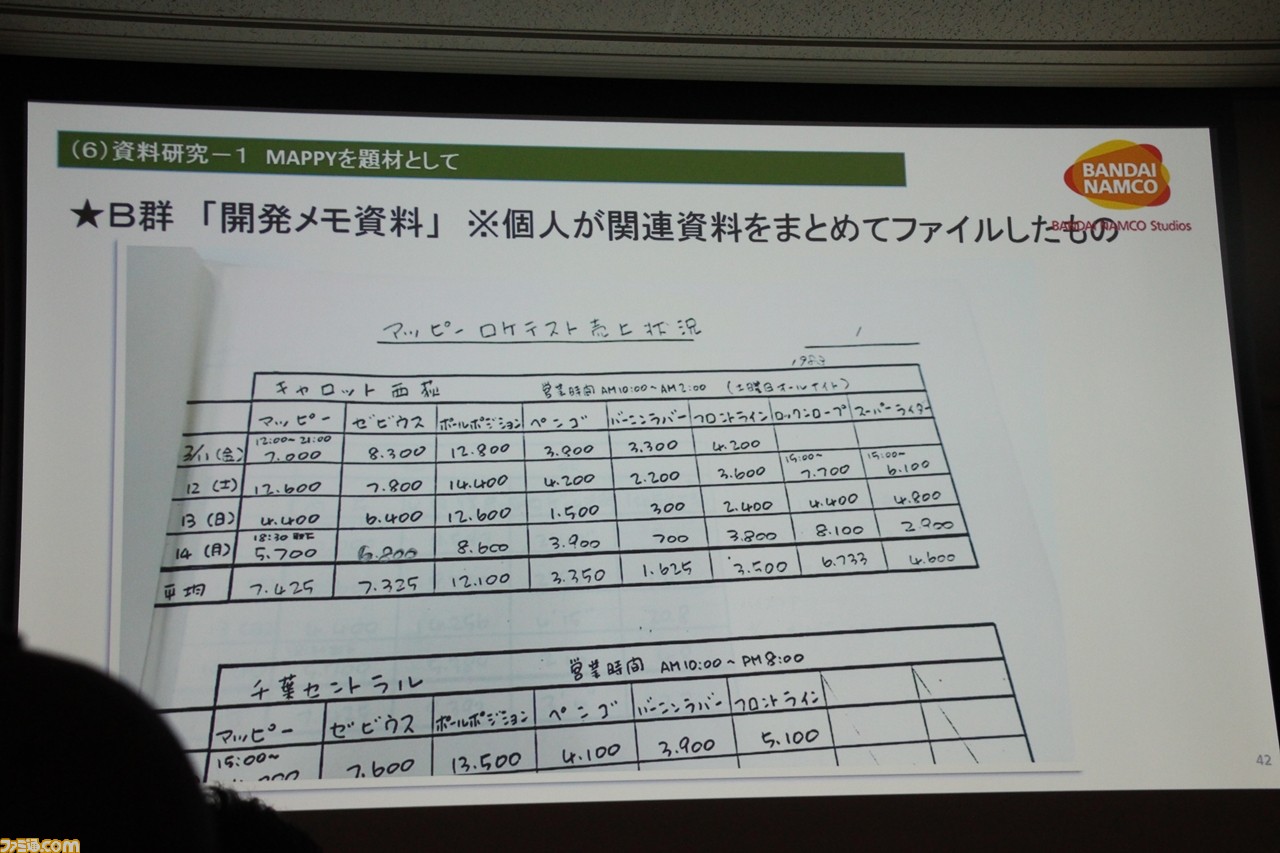 (6)資料研究-1 MAPPYを題材として
BANDAI
NAMCO
BANDAI NAMCO Studios
★B群 「開発メモ資料」 ※個人が関連資料をまとめてファイルしたもの
マッピー ロケテスト売上状況
1
1983
キャロット西荻 営業時間 AM10:00~AM2:00 (土曜日オールナイト)
マッピー ゼビウス ポールポジション ペンゴ バーニンラバー フロントライン ロックンロープ スーパーライダー
12:00~21:00 3/11(金) 7.000 8.300 12.800 3.800 3.300 4.200
12(土) 12.600 7.800 14.400 4.200 2.200 3.600 15:00~ 7.700 15:00~ 6.100
13(日) 4.400 6.400 12.600 1.500 300 2.400 4.400 4.800
14(月) 18:30 5.700 6.800 8.600 3.900 700 3.800 8.100 2.900
平均 7.425 7.325 12.100 3.350 1.625 3.500 6.733 4.600
千葉セントラル 営業時間 AM10:00~PM8:00
マッピー ゼビウス ポールポジション ペンゴ バーニンラバー フロントライン
15:00~ 7.600 13.500 4.100 3.900 5.100
42
ファミ通.com